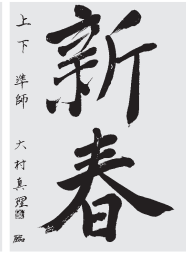 新春
上下 準師 大村真理
臨